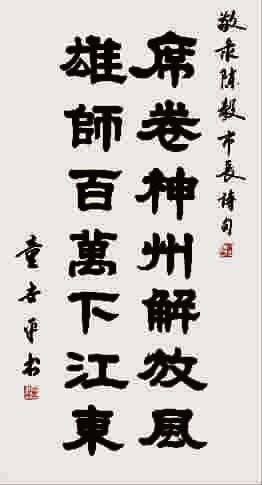 敬录陈毅市长诗句
席卷神州解放風
雄師百萬下江東
童世平书